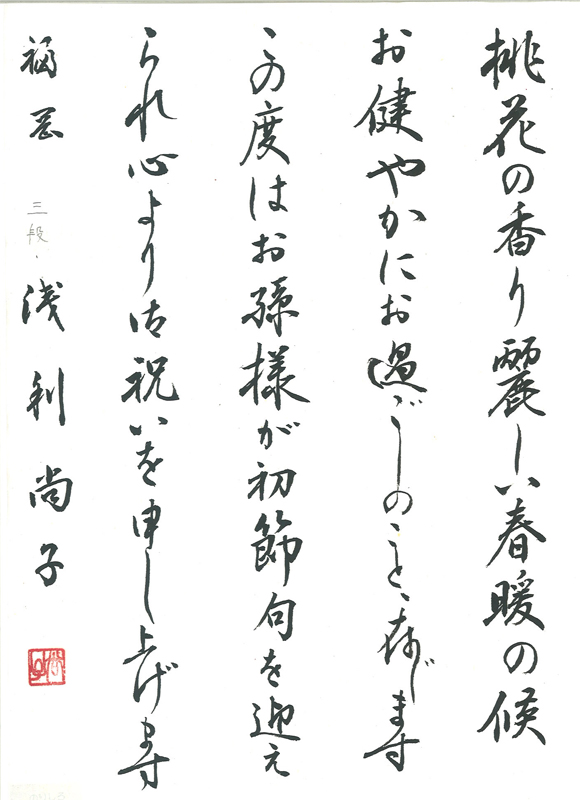 桃花の香り麗しい春暖の候
お健やかにお過ごしのことゝ存じます
この度はお孫様が初節句を迎え
られ心より御祝いを申し上げます
福岡 三段 浅利尚子